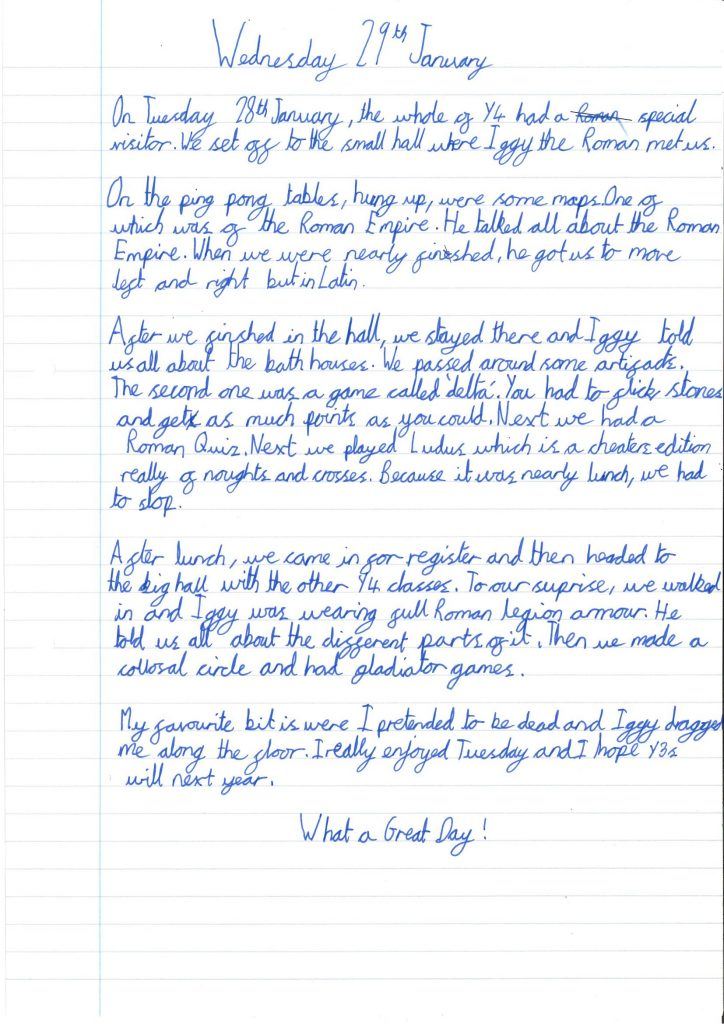 Wednesday 29th January
On Tuesday 28th January, the whole of Y4 had a Roman special
visitor. We set off to the small hall where Iggy the Roman met us.
On the ping pong tables, hung up, were some maps. One of
which was of the Roman Empire. He talked all about the Roman
Empire. When we were nearly fineshed, he got us to move
left and right but in Latin.
After we finshed in the hall, we stayed there and Iggy told
us all about the bath houses. We passed around some artifacts.
The second one was a game called 'delta'. You had to flick stones
and get as much points as you could. Next we had a
Roman Quiz. Next we played Ludus which is a cheaters edition
really of noughts and crosses. Because it was nearly lunch, we had
to stop.
After lunch, we came in for register and then headed to
the big hall with the other Y4 classes. To our suprise, we walked
in and Iggy was wearing full Roman legion armour. He
told us all about the different parts of it. Then we made a
collosal circle and had gladiator games.
My favourite bit is were I pretended to be dead and Iggy dragged
me along the floor. I really enjoyed Tuesday and I hope Y3s
will next year.
What a Great Day!